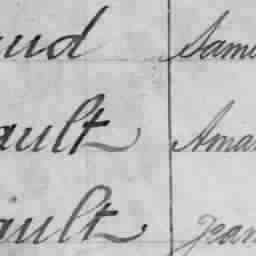 aud Samu
ault Aman
ault Jean